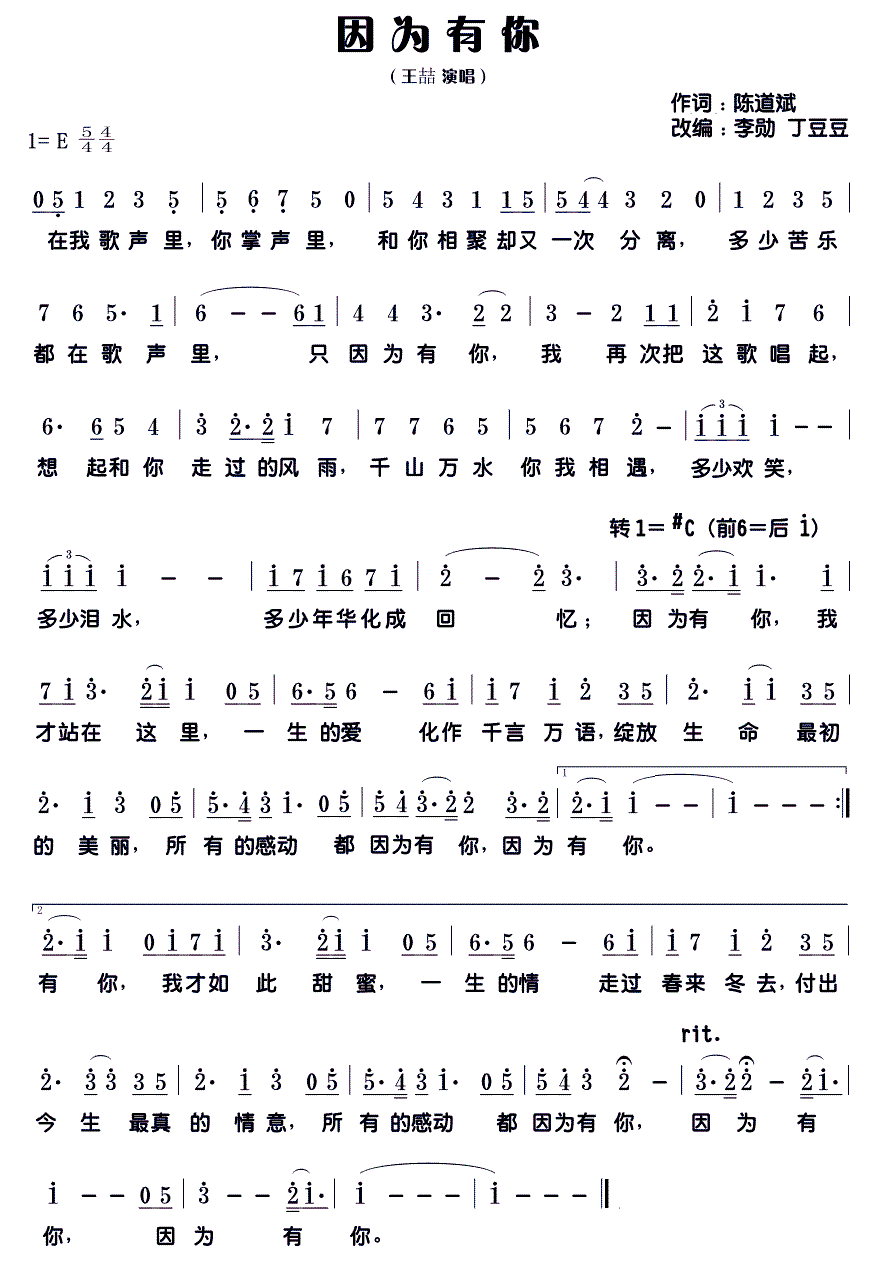 因为有你
（王喆 演唱）
作词：陈道斌
改编：李勋 丁豆豆
1= E 5/4 4/4
0 5 1 2 3 5 | 5 6 7 5 0 | 5 4 3 1 1 5 | 5 4 4 3 2 0 | 1 2 3 5 |
在我歌声里，你掌声里， 和你相聚却又一次 分离， 多少苦乐
7 6 5· 1 | 6 - - 6 1 | 4 4 3· 2 2 | 3 - 2 1 1 | 2 1 7 6 |
都在歌 声里， 只因为有 你， 我 再次把 这歌唱起，
6· 6 5 4 | 3 2· 2 1 7 | 7 7 6 5 | 5 6 7 2 - | 1 1 1 1 - - |
想 起和你 走过的风 雨，千山万水 你我相遇， 多少欢笑，
转1=#C（前6=后 i）
1 1 1 1 - - | 1 7 1 6 7 1 | 2 - 2 3· | 3· 2 2· 1 1· 1 |
多少泪水， 多少年华化成 回 忆； 因 为有 你， 我
7 1 3· 2 1 1 0 5 | 6· 5 6 - 6 1 | 1 7 1 2 3 5 | 2· 1 1 3 5 |
才站在 这 里， 一 生 的爱 化作 千言 万语，绽放 生 命 最初
2· 1 3 0 5 | 5· 4 3 1· 0 5 | 5 4 3· 2 2 3· 2 | 1 2· 1 1 - - | 1 - - :|
的 美丽， 所 有的感动 都 因为有 你，因 为 有 你。
2 2· 1 1 0 1 7 1 | 3· 2 1 1 0 5 | 6· 5 6 - 6 1 | 1 7 1 2 3 5 |
有 你， 我才如 此 甜 蜜， 一 生 的情 走过 春来 冬去，付出
rit.
2· 3 3 3 5 | 2· 1 3 0 5 | 5· 4 3 1· 0 5 | 5 4 3 2 - | 3· 2 2 - 2 1· |
今 生 最真 的 情意， 所 有的感动 都 因为有你， 因 为 有
1 - - 0 5 | 3 - - 2 1· | 1 - - - | 1 - - ‖
你， 因 为 有 你。